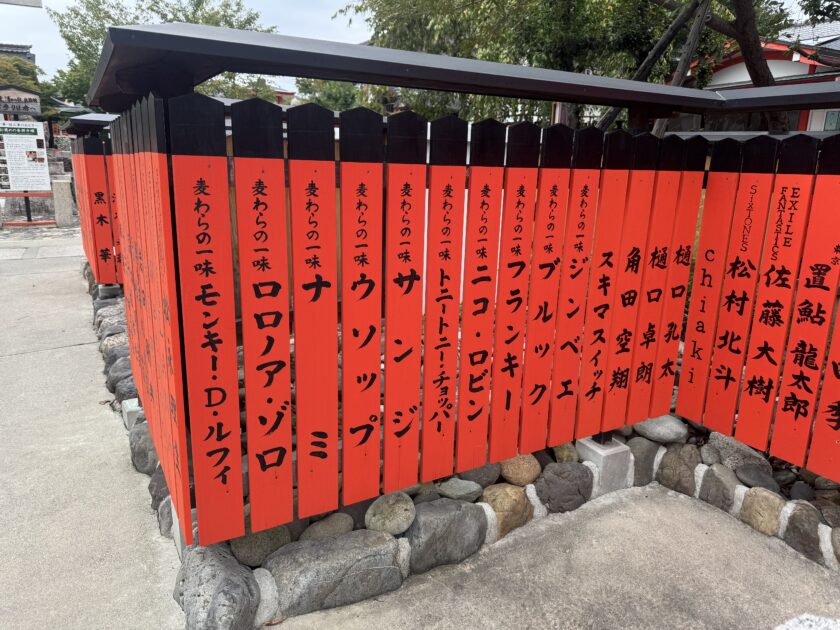 麦わらの一味 モンキー・D・ルフィ
麦わらの一味 ロロノア・ゾロ
麦わらの一味 ナミ
麦わらの一味 ウソップ
麦わらの一味 サンジ
麦わらの一味 トニートニー・チョッパー
麦わらの一味 ニコ・ロビン
麦わらの一味 フランキー
麦わらの一味 ブルック
麦わらの一味 ジンベエ
スキマスイッチ
角田空翔
樋口卓朗
樋口孔太
chiaki
SixTONES 松村北斗
EXILE
FANTASTICS
佐藤大樹
置鮎龍太郎
黒木華